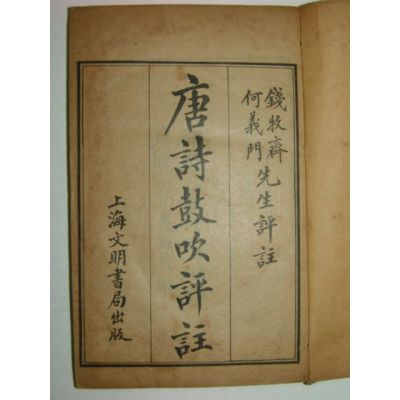 錢牧齋
何義門
先生評註
唐詩鼓吹評註
上海文明書局出版